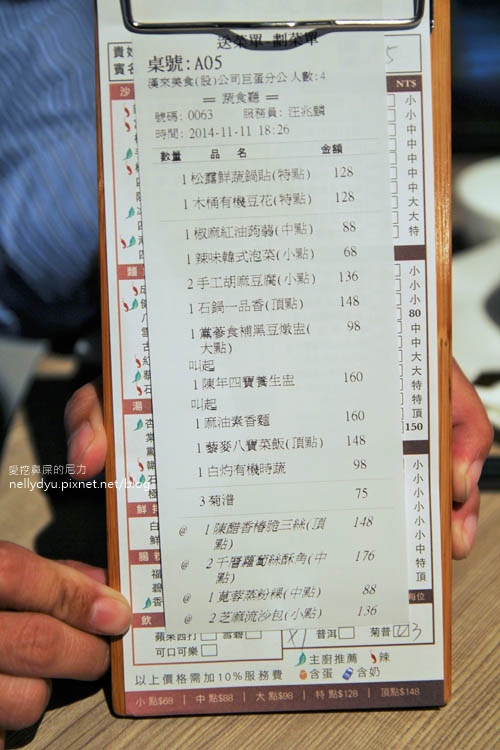 送菜單-劃菜單
桌號:A05
漢來美食(股)公司巨蛋分公 人數:4
== 蔬食廳 ==
號碼: 0063 服務員: 汪兆麟
時間: 2014-11-11 18:26
數量 品 名 金額
1 松露鮮蔬鍋貼(特點) 128
1 木桶有機豆花(特點) 128
1 椒麻紅油蒟蒻(中點) 88
1 辣味韓式泡菜(小點) 68
2 手工胡麻豆腐(小點) 136
1 石鍋一品香(頂點) 148
1 黨蔘食補黑豆燉盅( 98
大點)
叫起
1 陳年四寶養生盅 160
叫起
1 麻油素香麵 160
1 藜麥八寶菜飯(頂點) 148
1 白灼有機時蔬 98
3 菊普 75
@ 1 陳醋香椿脆三絲(頂 148
點)
@ 2 千層蘿蔔絲酥角(中 176
點)
@ 1 莧蓉蒸粉粿(中點) 88
@ 2 芝麻流沙包(小點) 136
NT$
小
小
中
中
中
中
中
大
大
特
小
小
小
80
中
中
大
大
特
特
頂
150
小
小
小
小
小
中
特
頂
每位
蘋果西打 雪碧 普洱 菊普 3
可口可樂
主廚推薦 辣
以上價格需加10%服務費 含蛋 含奶
小點$68 | 中點$88 | 大點$98 | 特點$128 | 頂點$148
愛挖鼻屎的尼力
nellydyu.pixnet.net/blog